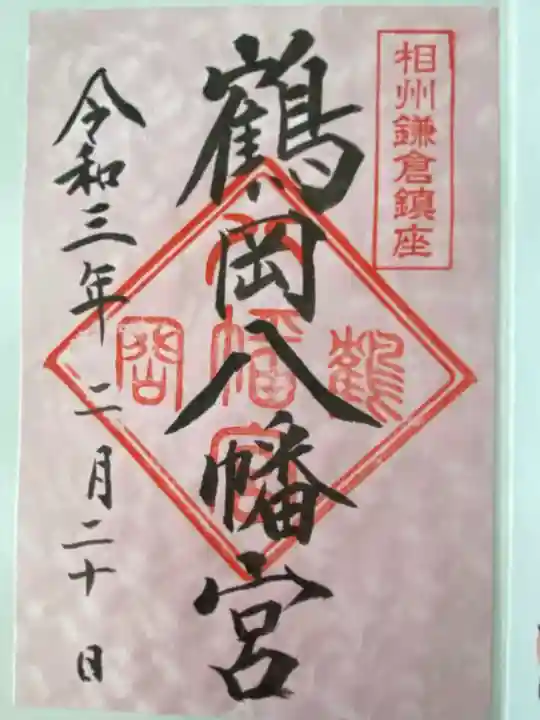 相州鎌倉鎮座
鶴岡八幡宮
鶴岡八幡宮
令和三年二月二十日